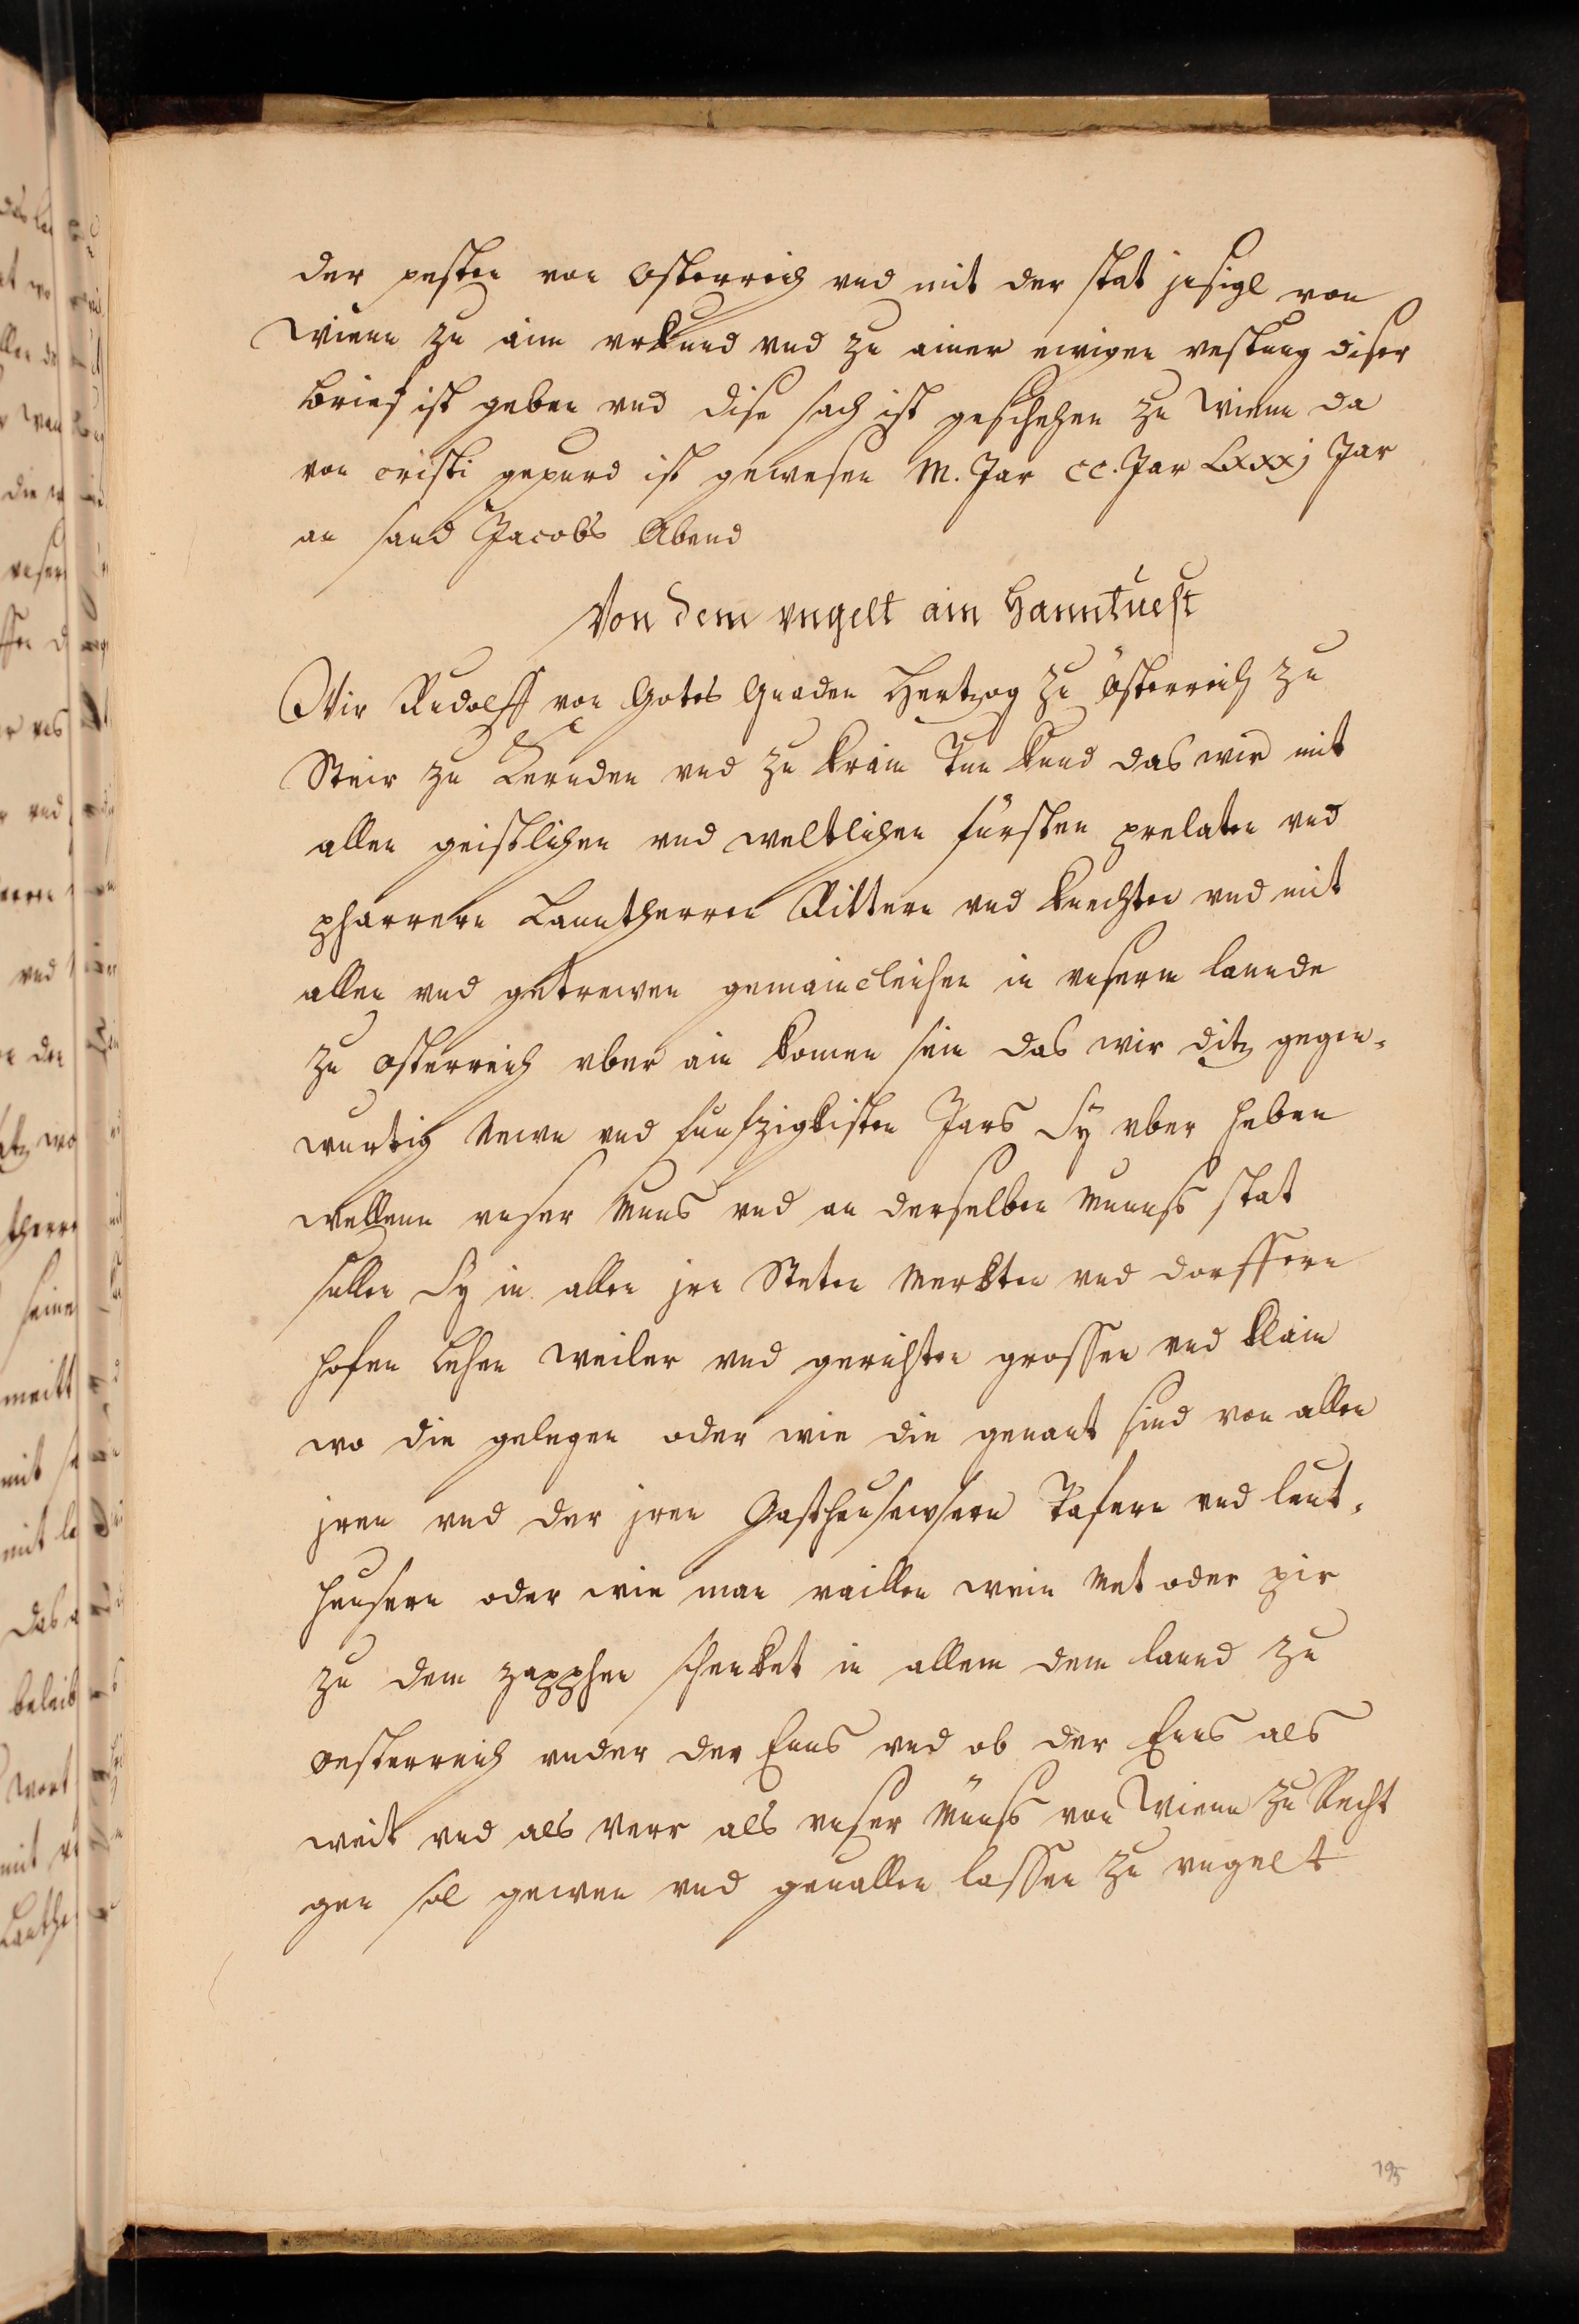 der pesten von Osterreich vnd mit der stat jnsigl von
Wienn zu aim vrkund vnd zu ainer ewigen vestung diser
brief ist geben vnd dise sach ist geschehen zu Wienn da
von cristi gepurd ist gewesen M. Jar CC. Jar Lxxxj Jar
an sand Jacobs Abend
Von dem vngelt ain Hanntuest
Wir Rudolff von Gotes Gnaden Hertzog zu Österreich zu
Steir zu Kernden vnd zu Krain Tun kund das wir mit
allen geistlichen vnd weltlichen fürsten prelaten vnd
pharrern Lanntherren Rittern vnd knechten vnd mit
allen vnd getrewen gemaincleichen in vnserm lannde
zu Osterreich vber ain komen sein das wir ditz gegen-
wurtig Newn vnd funfzigkisten Jars Sy vber heben
wellenn vnser Muns vnd an derselben Munss stat
sullen Sy in allen jrn Steten Merkten vnd dorffern
hofen Lehen weiler vnd gerichten grossen vnd klain
wo die gelegen oder wie die genant sind von allen
jren vnd der jren Gasthensewsern Tafern vnd leut-
hensern oder wie man vaillen wein Met oder pir
zu dem zapphen schenket in allem dem lannd zu
Oesterreich vnder der Enns vnd ob der Enns als
weit vnd als Verr als vnser Münss von Wienn zu Recht
gen sol gewen vnd geuallen lassen zu vngelt
195